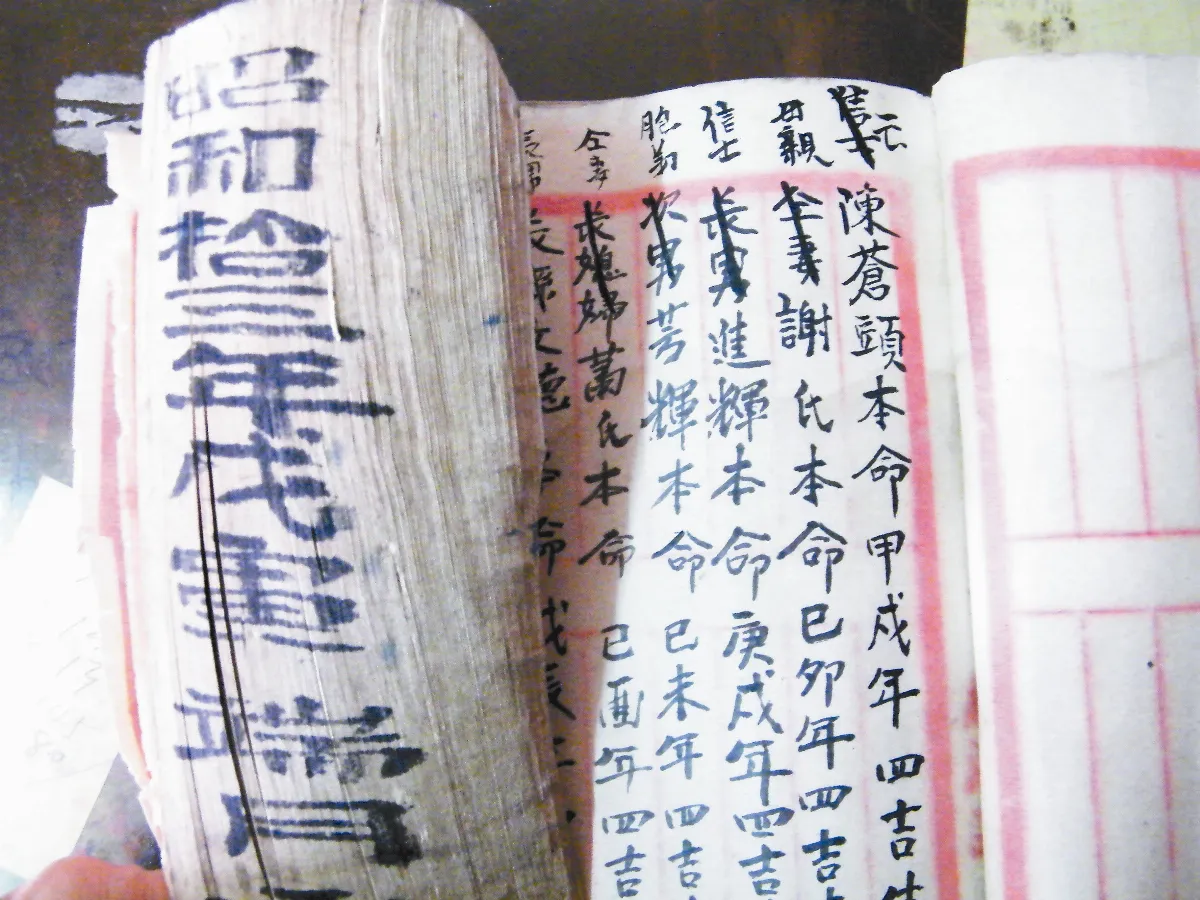 信士元陳蒼頭本命甲戌年四吉
母親仝妻謝氏本命己卯年四吉
信士長男進輝本命庚戌年四吉
胞弟次男芳輝本命己未年四吉
仝妻長媳婦萬氏本命己酉年四吉
長男長孫文德本命戊辰年
昭和拾三年戊寅端月